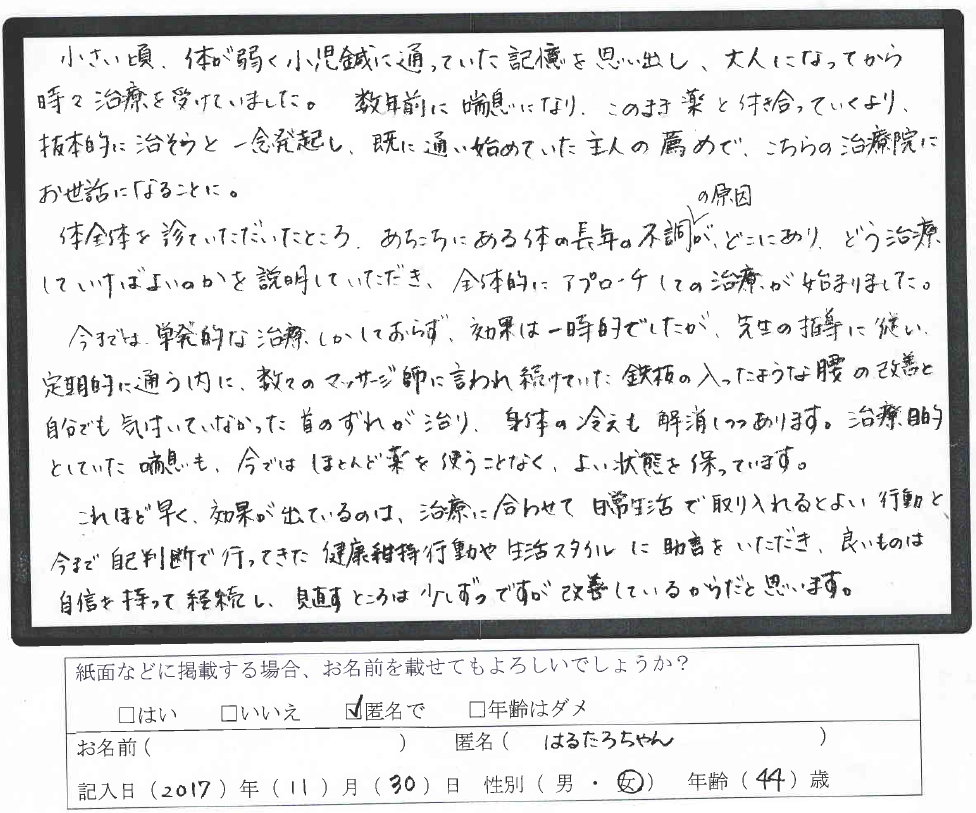 小さい頃、体が弱く小児鍼に通っていた記憶を思い出し、大人になってから
時々治療を受けていました。 数年前に喘息になり、このまま薬と付き合っていくより、
抜本的に治そうと一念発起し、既に通い始めていた主人の薦めで、こちらの治療院に
お世話になることに。
の原因
体全体を診ていただいたところ、あちこちにある体の長年の不調が、どこにあり、どう治療
していけばよいのかを説明していただき、全体的にアプローチしての治療が始まりました。
今までは、単発的な治療しかしておらず、効果は一時的でしたが、先生の指導に従い、
定期的に通う内に、数々のマッサージ師に言われ続けていた鉄板の入ったような腰の改善と
自分でも気付いていなかった首のずれが治り、身体の冷えも解消しつつあります。治療目的
としていた喘息も、今ではほとんど薬を使うことなく、よい状態を保っています。
これほど早く、効果が出ているのは、治療に合わせて日常生活で取り入れるとよい行動と
今まで自己判断で行ってきた健康維持行動や生活スタイルに助言をいただき、良いものは
自信を持って継続し、見直すところは少しずつですが改善しているからだと思います。
紙面などに掲載する場合、お名前を載せてもよろしいでしょうか？
□はい □いいえ ☑匿名で □年齢はダメ
お名前（ ） 匿名（ はるたろちゃん ）
記入日（2017）年（11）月（30）日 性別（男・女） 年齢（44）歳